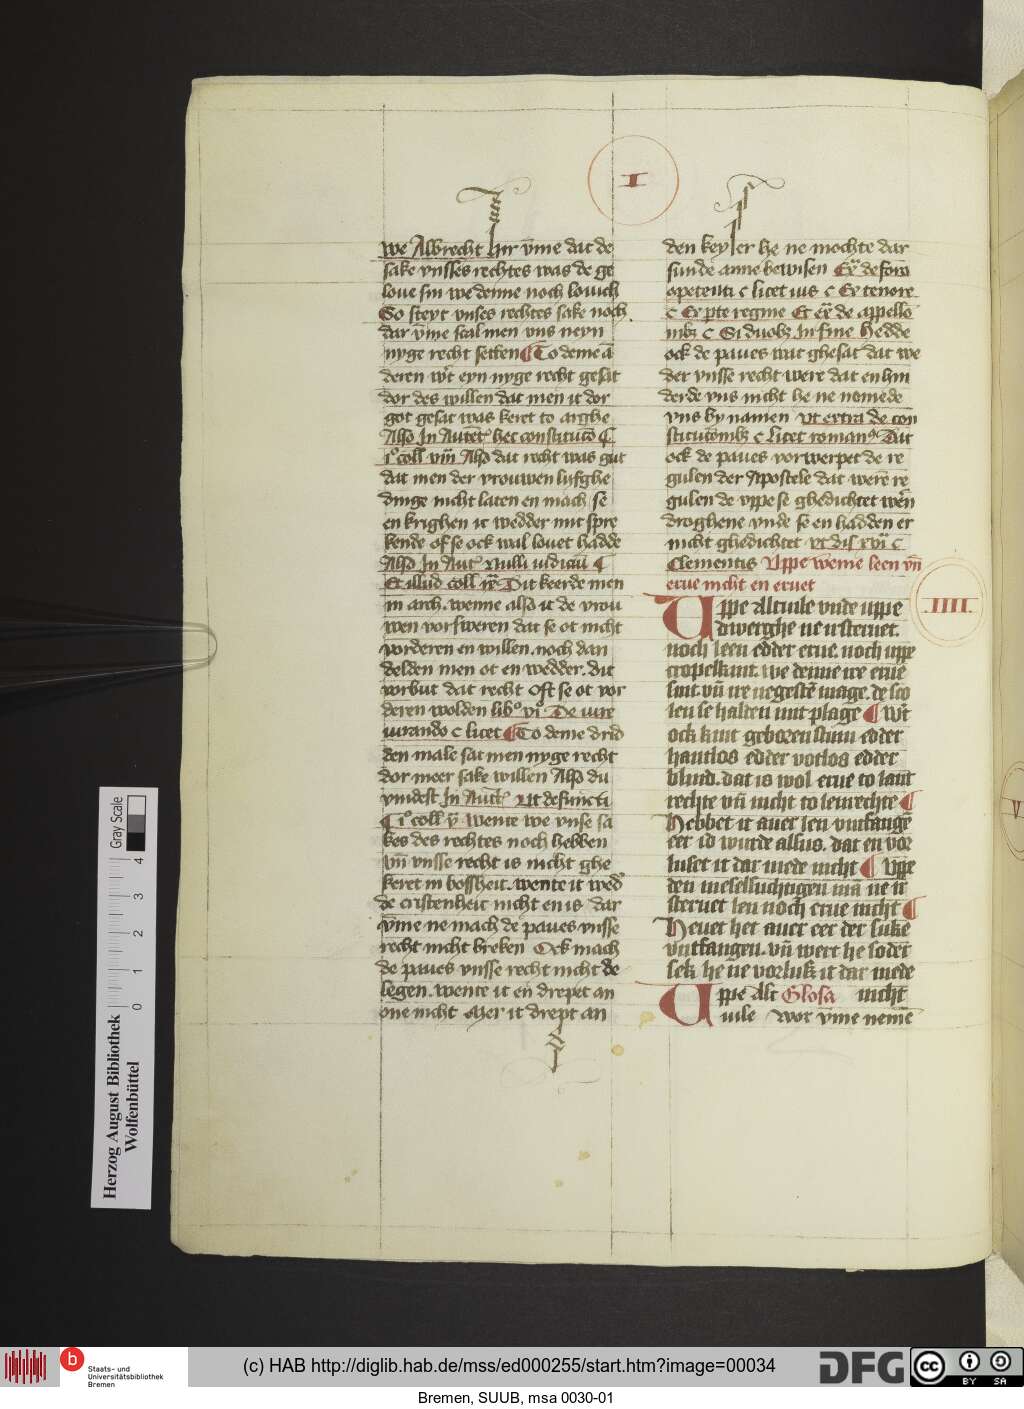 I
we Albrecht hir v̄me dat de
sake vnsses rechtes was de ge
loue sin we denne noch louich
So steyt vnses rechtes sake noch
dar v̄me scal men vns neyn
nyge recht setten ¶ To deme ā
deren wt eyn nyge recht gesat
dor des willen dat men it dor
got gesat was keret to arghe
Also In Autet hec constitucō ¶
coll viii Also dat recht was gut
dat men der vrouwen lyfghe
dinge nicht laten en mach se
en krighen it wedder mit spre
kende of se ock wal louet hadde
Also In Aut Nulli iudicū ¶
Et illud coll Dit keerde men
in arch. wenne also it de vrou
wen vorsweren dat se ot nicht
vorderen en willen. noch dan
delden men ot en wedder. dit
vorbut dat recht Oft se ot vor
deren wolden lib° vi° De iure
iurando c licet ¶ To deme drid
den male sat men nyge recht
dor meer sake willen Also du
vindest In Aut Ut defuncti
¶ i° coll v Wente we vnse sa
kes des rechtes noch hebben
vn̄ vnsse recht is nicht ghe
keret in bossheit. wente it wed
de cristenheit nicht en is dar
v̄me ne mach de paues vnsse
recht nicht breken Ock mach
de paues vnsse recht nicht de
legen. wente it en drepet an
one nicht Mer it drept an
den keyser he ne mochte dar
sunde anne bewisen Ex de foro
opetenti c licet ius c Ex tenore
c Ex pte regine Et Ex de appello
c Si duobz In fine Hedde
ock de paues wat ghesat dat we
der vnsse recht were dat en hin
derde vns nicht he ne nomede
vns by namen vt extra de con
c Licet roman Dat
ock de paues vorwerpet de re
gulen der Apostele dat were re
gulen de vppe se ghedichtet wen
droghene vnde se en hadden er
nicht ghedichtet vt dis xvi c
Clementis Uppe weme leen vn̄
erue nicht en eruet
IIII.
Uppe altuile vnde uppe
dwerghe ne irsteruet.
noch leen edder erue. noch uppe
cropelkint. we denne ire erue
sint. vn̄ ire negestē mage. de sco
len se halden mit plage ¶ Wt
ock kint geboren stum edder
hantlos edder votlos edder
blind. dat is wol erue to lant
rechte vn̄ nicht to lenrechte ¶
Hebbet it auer len vntfangē
eer id wurde allus. dat en vor
luset it dar mede nicht ¶ Uppe
den meselsuchtigen man ne ir
steruet len noch erue nicht ¶
Heuet het auer eer der suke
vntfangen. vn̄ wert he soder
sek he ne vorlust it dar mede
Uppe alt Glosa nicht
uile Wor v̄me nemē
V
0 1 2 3 4
Gray Scale
Herzog August Bibliothek
Wolfenbüttel
b
Staats- und
Universitätsbibliothek
Bremen
(c) HAB http://diglib.hab.de/mss/ed000255/start.htm?image=00034
DFG
cc BY SA
Bremen, SUUB, msa 0030-01